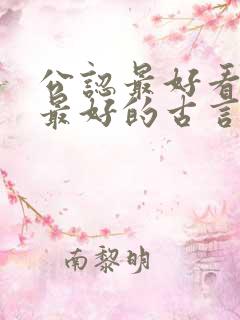 公認最好看
最好的古言
南黎明